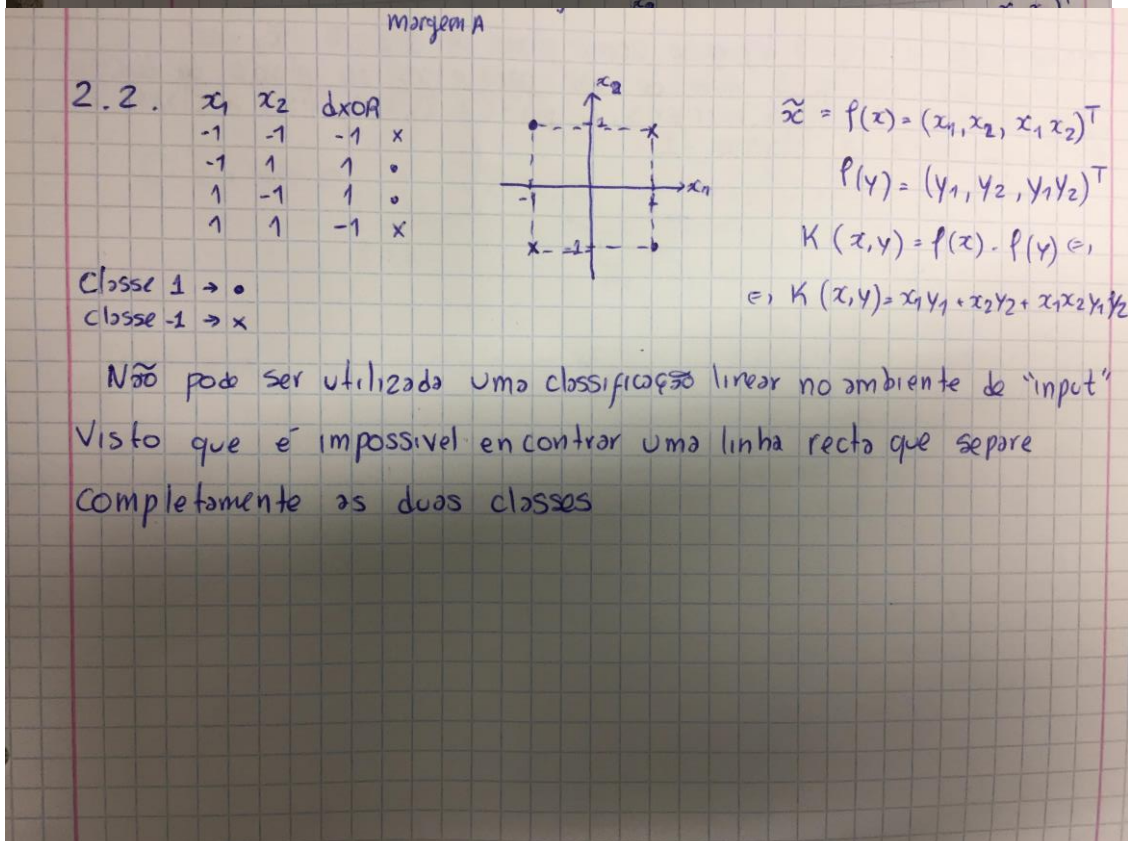 margem A
2.2. x₁ x₂ dxOR
-1 -1 -1 x
-1 1 1 •
1 -1 1 •
1 1 -1 x
Classe 1 → •
classe -1 → x
x₂
1
-1 1 x₁
-1
x̃ = φ(x) = (x₁, x₂, x₁ x₂)ᵀ
φ(y) = (y₁, y₂, y₁y₂)ᵀ
K (x,y) = φ(x) . φ(y) =,
=, K (x,y) = x₁y₁ + x₂y₂ + x₁x₂y₁y₂
Não pode ser utilizada uma classificação linear no ambiente de "input"
Visto que é impossivel encontrar uma linha recta que separe
completamente as duas classes